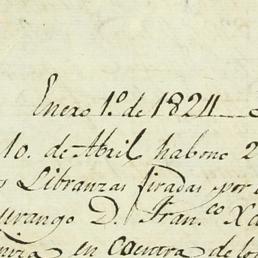 Enero 1.º de 1824
10. de Abril habono 2
Libranzas firadas por
D. Fran.co Xa
en cuentra de los